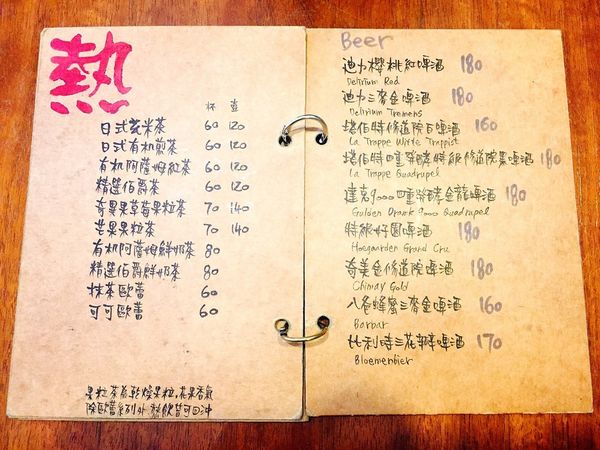 熱
杯 壺
日式玄米茶 60 120
日式有机煎茶 60 120
有机阿薩姆紅茶 60 120
精選伯爵茶 60 120
奇異果草莓果粒茶 70 140
芒果果粒茶 70 140
有机阿薩姆鮮奶茶 80
精選伯爵鮮奶茶 80
抹茶歐蕾 60
可可歐蕾 60
果粒茶為乾燥果粒,花果香氣
除歐蕾系列外 熱飲皆可回沖
Beer
迪力櫻桃紅啤酒 180
Delirium Red
迪力三麥金啤酒 180
Delirium Tremens
塔伯特修道院白啤酒 160
La Trappe White Trappist
塔伯特四重發酵特級修道院黑啤酒 180
La Trappe Quadrupel
達克9000四重發酵金龍啤酒 180
Gulden Drank 9000 Quadrupel
特級好園啤酒 180
Hoegarden Grand Cru
奇美金修道院啤酒 180
Chimay Gold
八爸蜂蜜三麥金啤酒 160
Barbar
比利時三花瓣啤酒 170
Bloemenbier